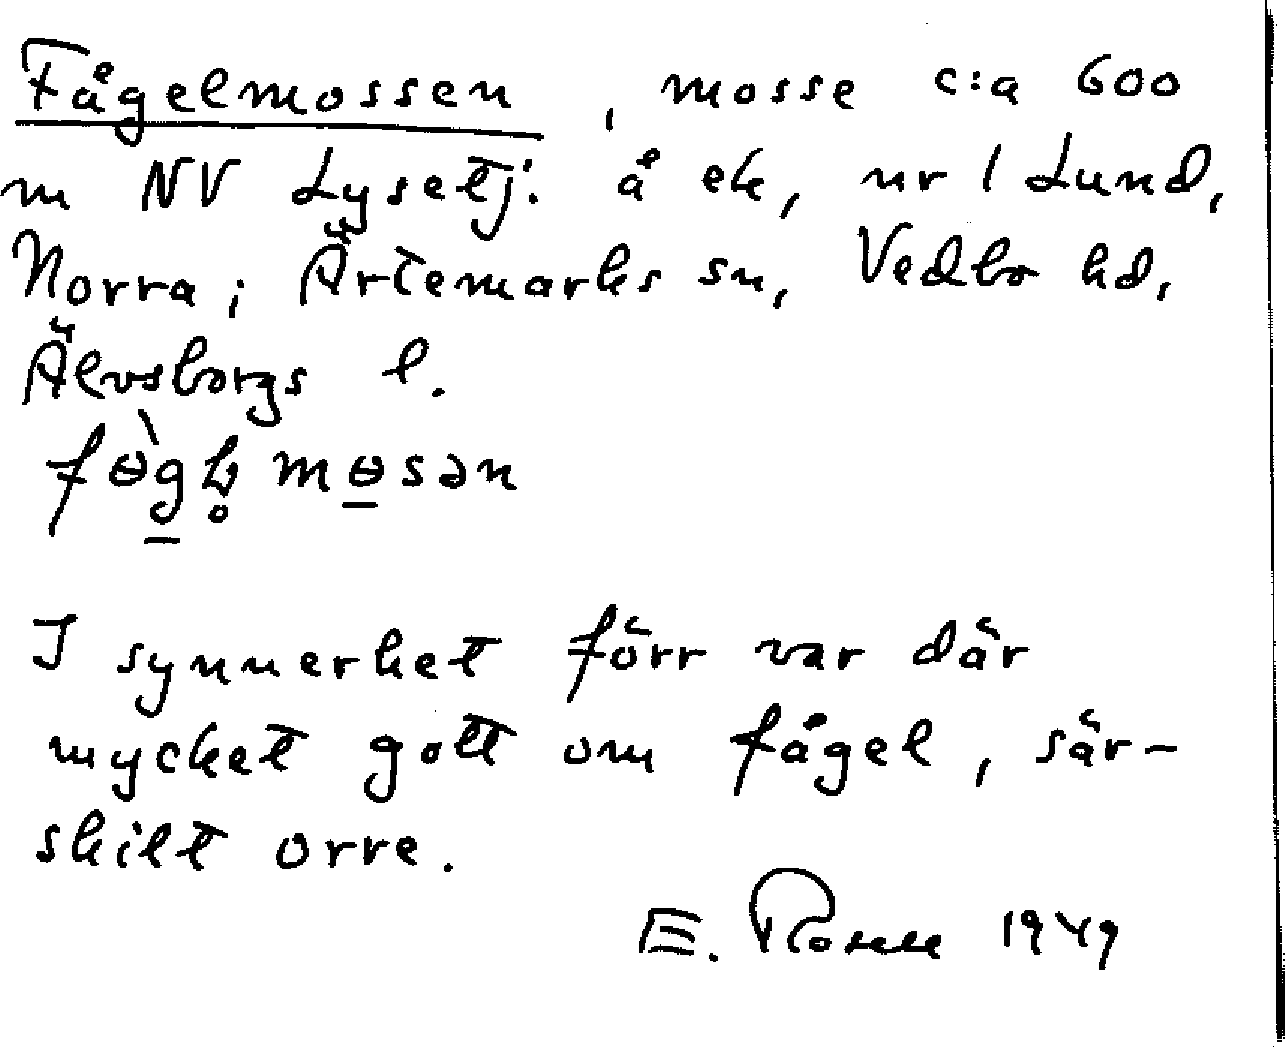 Fågelmossen, mosse c:a 600
m NV Lysetj. å ek, nr 1 Lund,
Norra; Ärtemarks sn, Vedbo hd,
Älvsborgs l.
mɵsən
I synnerhet förr var där
mycket gott om fågel, sär-
skilt orre.
E. 1949